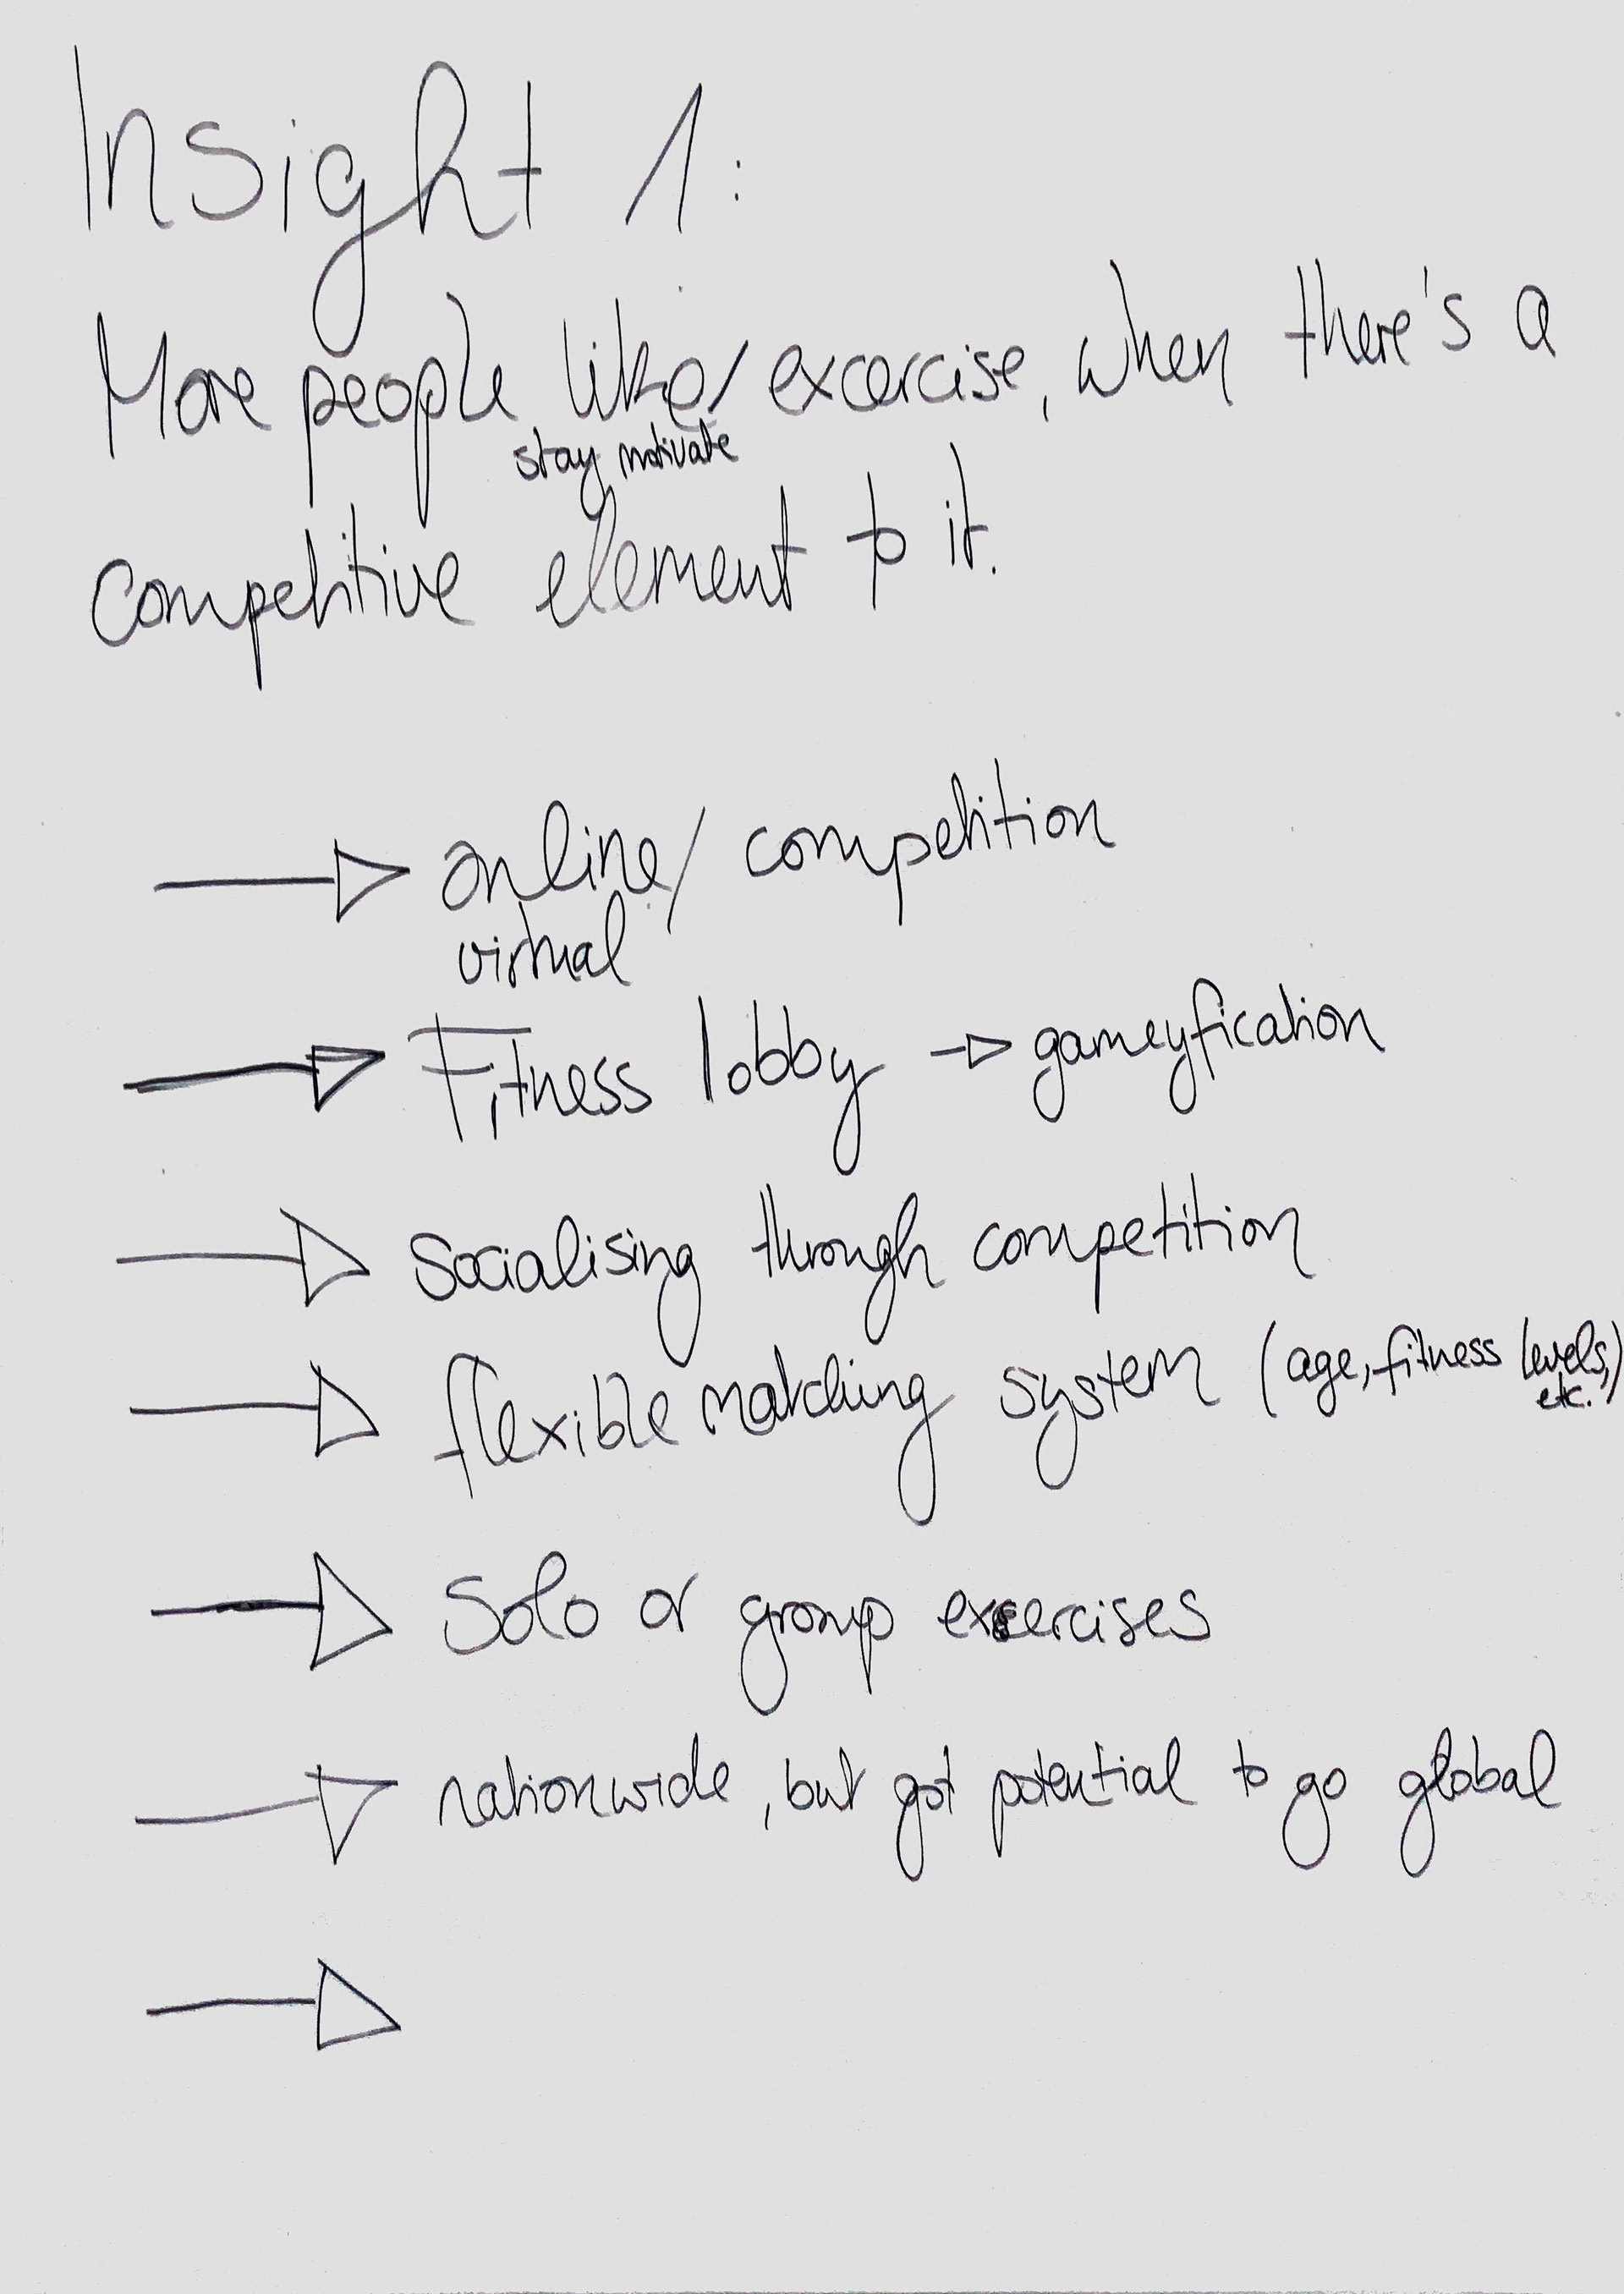 Insight 1:
More people like/ excercise, when there's a
stay motivate
competitive element to it.
online/ competition
virtual
Fitness lobby → gameyfication
Socialising through competition
flexible matching system (age, fitness levels,)
etc.
Solo or group exercises
nationwide, but got potential to go global